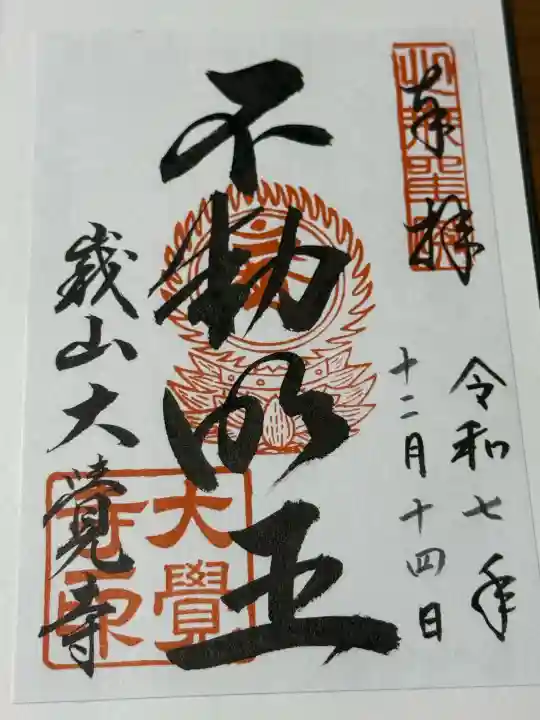 奉拝
令和七年
十二月十四日
不動明王
嵯山大覺寺
大覺
寺印